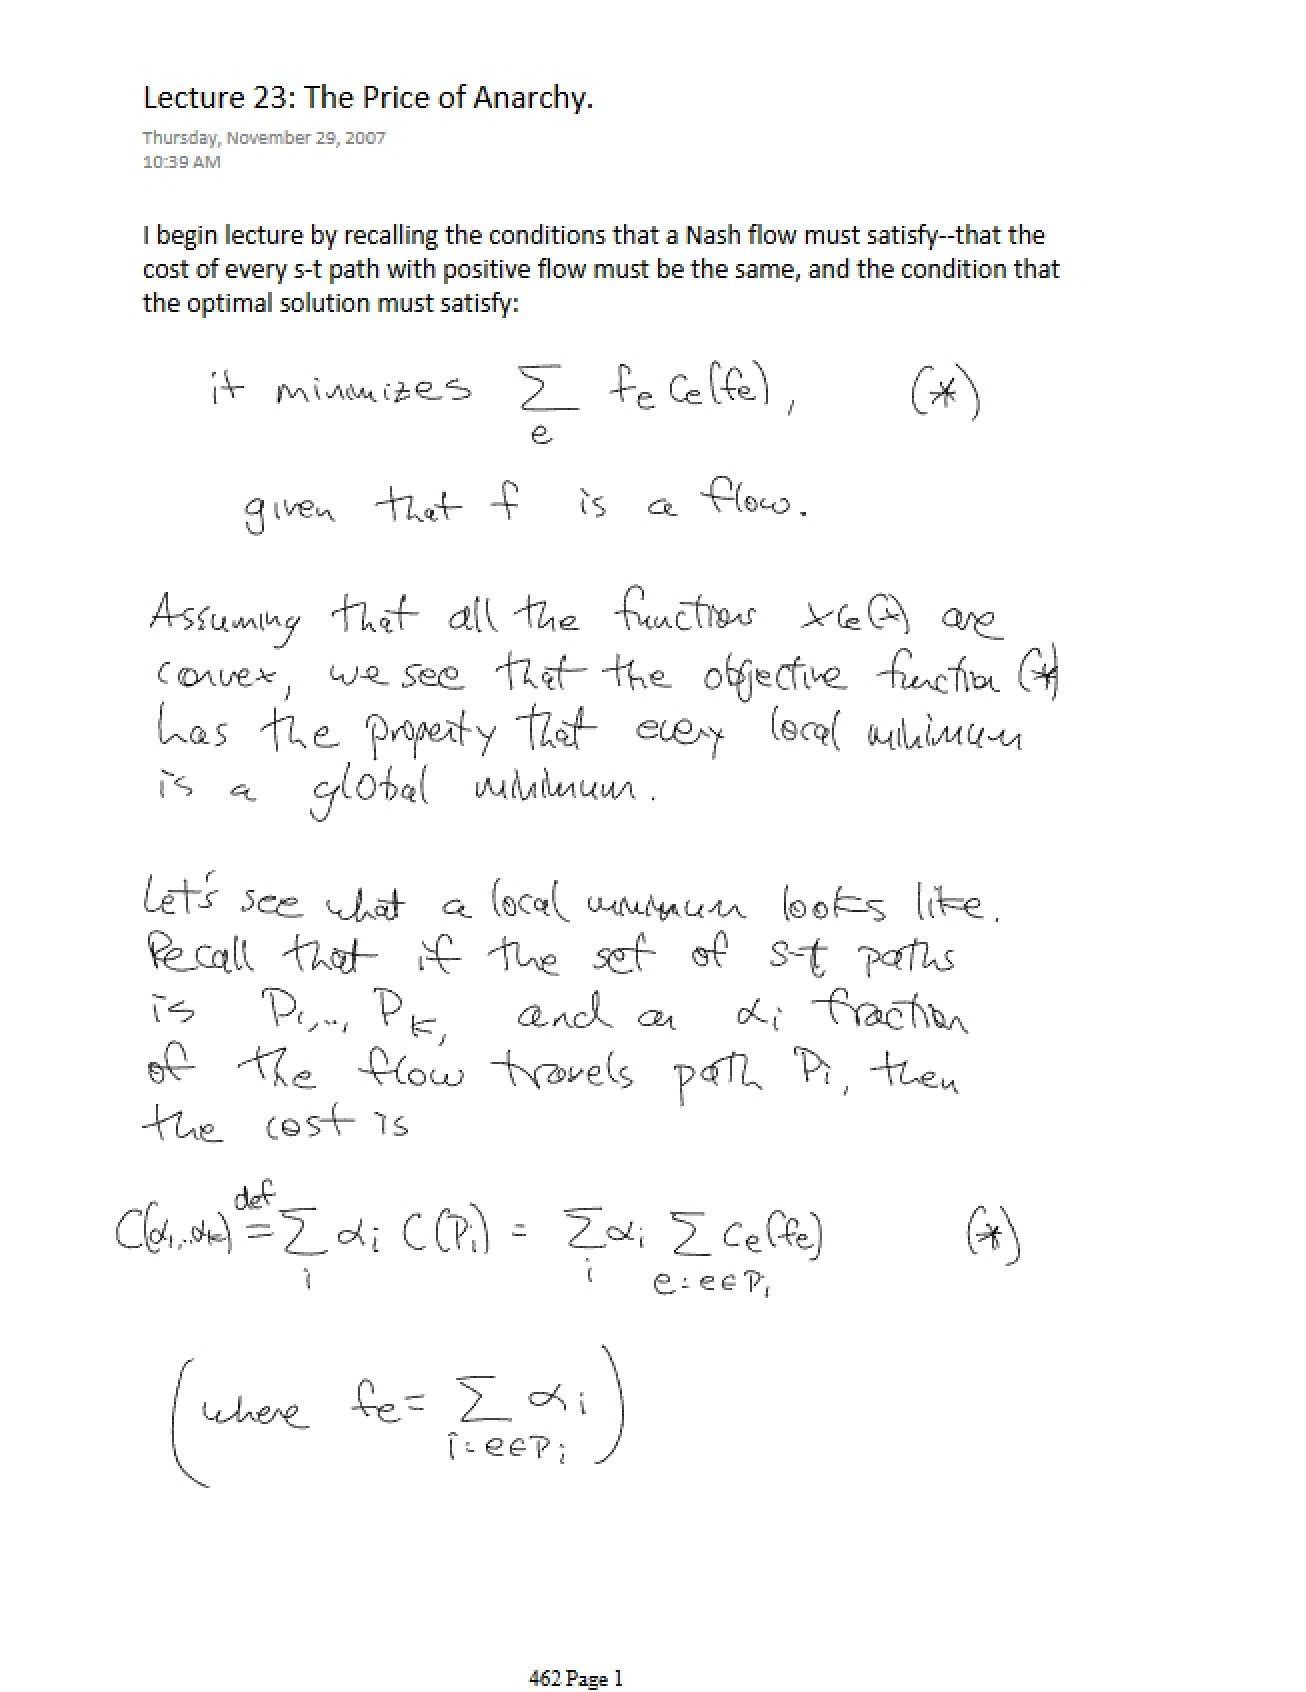 Lecture 23: The Price of Anarchy.
Thursday, November 29, 2007
10:39 AM
I begin lecture by recalling the conditions that a Nash flow must satisfy--that the
cost of every s-t path with positive flow must be the same, and the condition that
the optimal solution must satisfy:
it minimizes ∑ fe Ce(fe), (*)
e
given that f is a flow.
Assuming that all the functions xCe(x) are
convex, we see that the objective function (*)
has the property that every local minimum
is a global minimum.
Let's see what a local minimum looks like.
Recall that if the set of s-t paths
is P1,..., Pk, and an αi fraction
of the flow travels path Pi, then
the cost is
C(α1,..αk) def= ∑ αi C(Pi) = ∑ αi ∑ Ce(fe) (*)
i i e:e∈Pi
(where fe = ∑ αi)
i:e∈Pi
462 Page 1